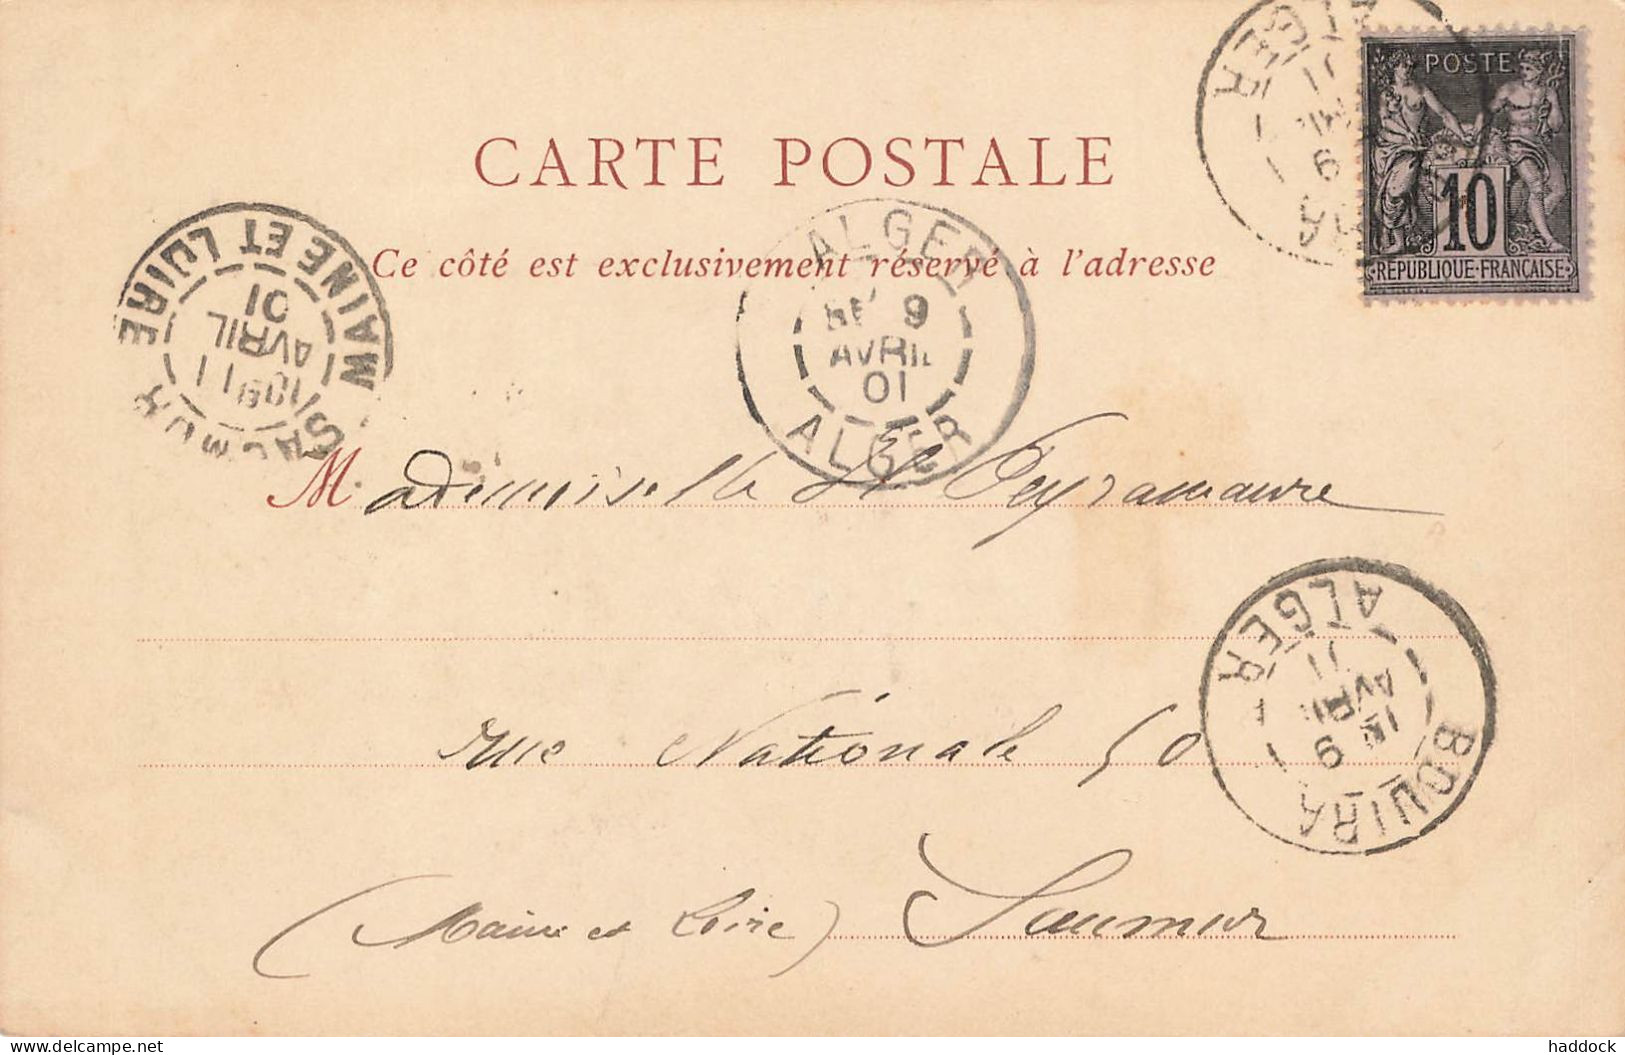 CARTE POSTALE
Ce côté est exclusivement réservé à l'adresse
POSTE
10
REPUBLIQUE FRANÇAISE
ALGER
MAINE ET LOIRE
11
AVRIL
01
SAUMUR
ALGER
9
AVRIL
01
ALGER
Mademoiselle de Peyramaure
rue Nationale 50
(Maine et Loire) Saumur
ALGER
9
AVRIL
01
BOUIRA
www.delcampe.net
haddock